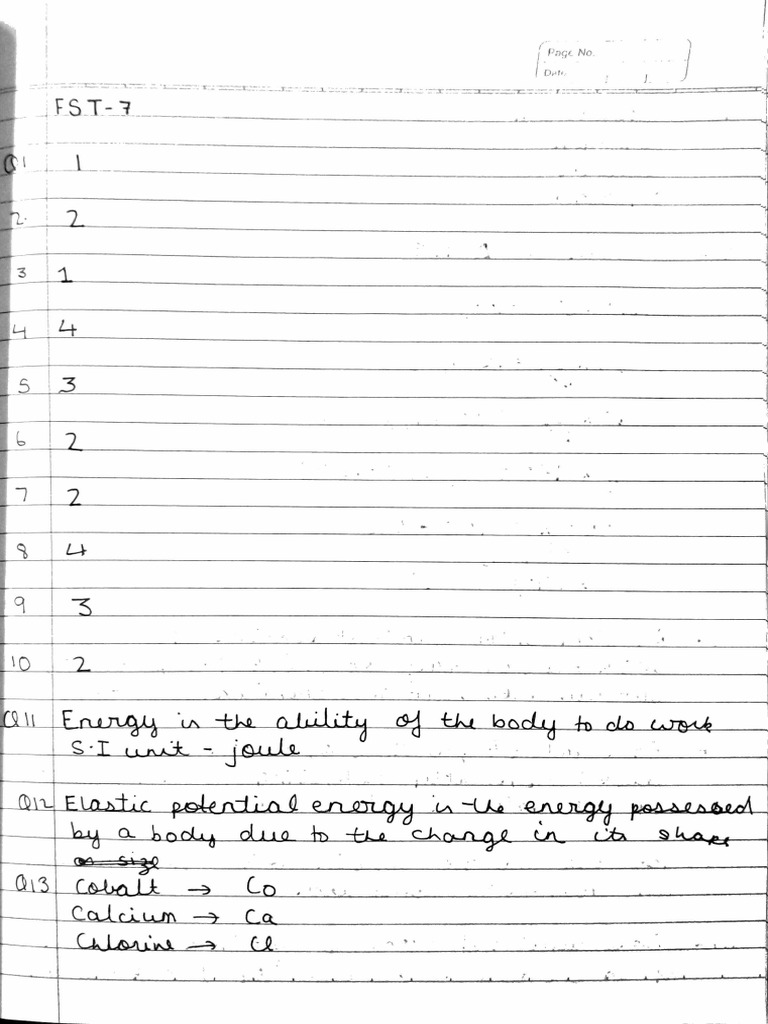 Page No.
Date
FST-7
Q1 1
2. 2
3 1
4 4
5 3
6 2
7 2
8 4
9 3
10 2
Q11 Energy is the ability of the body to do work
S.I unit - joule
Q12 Elastic potential energy is the energy possessed
by a body due to the change in its shape
or size
Q13 Cobalt → Co
Calcium → Ca
Chlorine → Cl